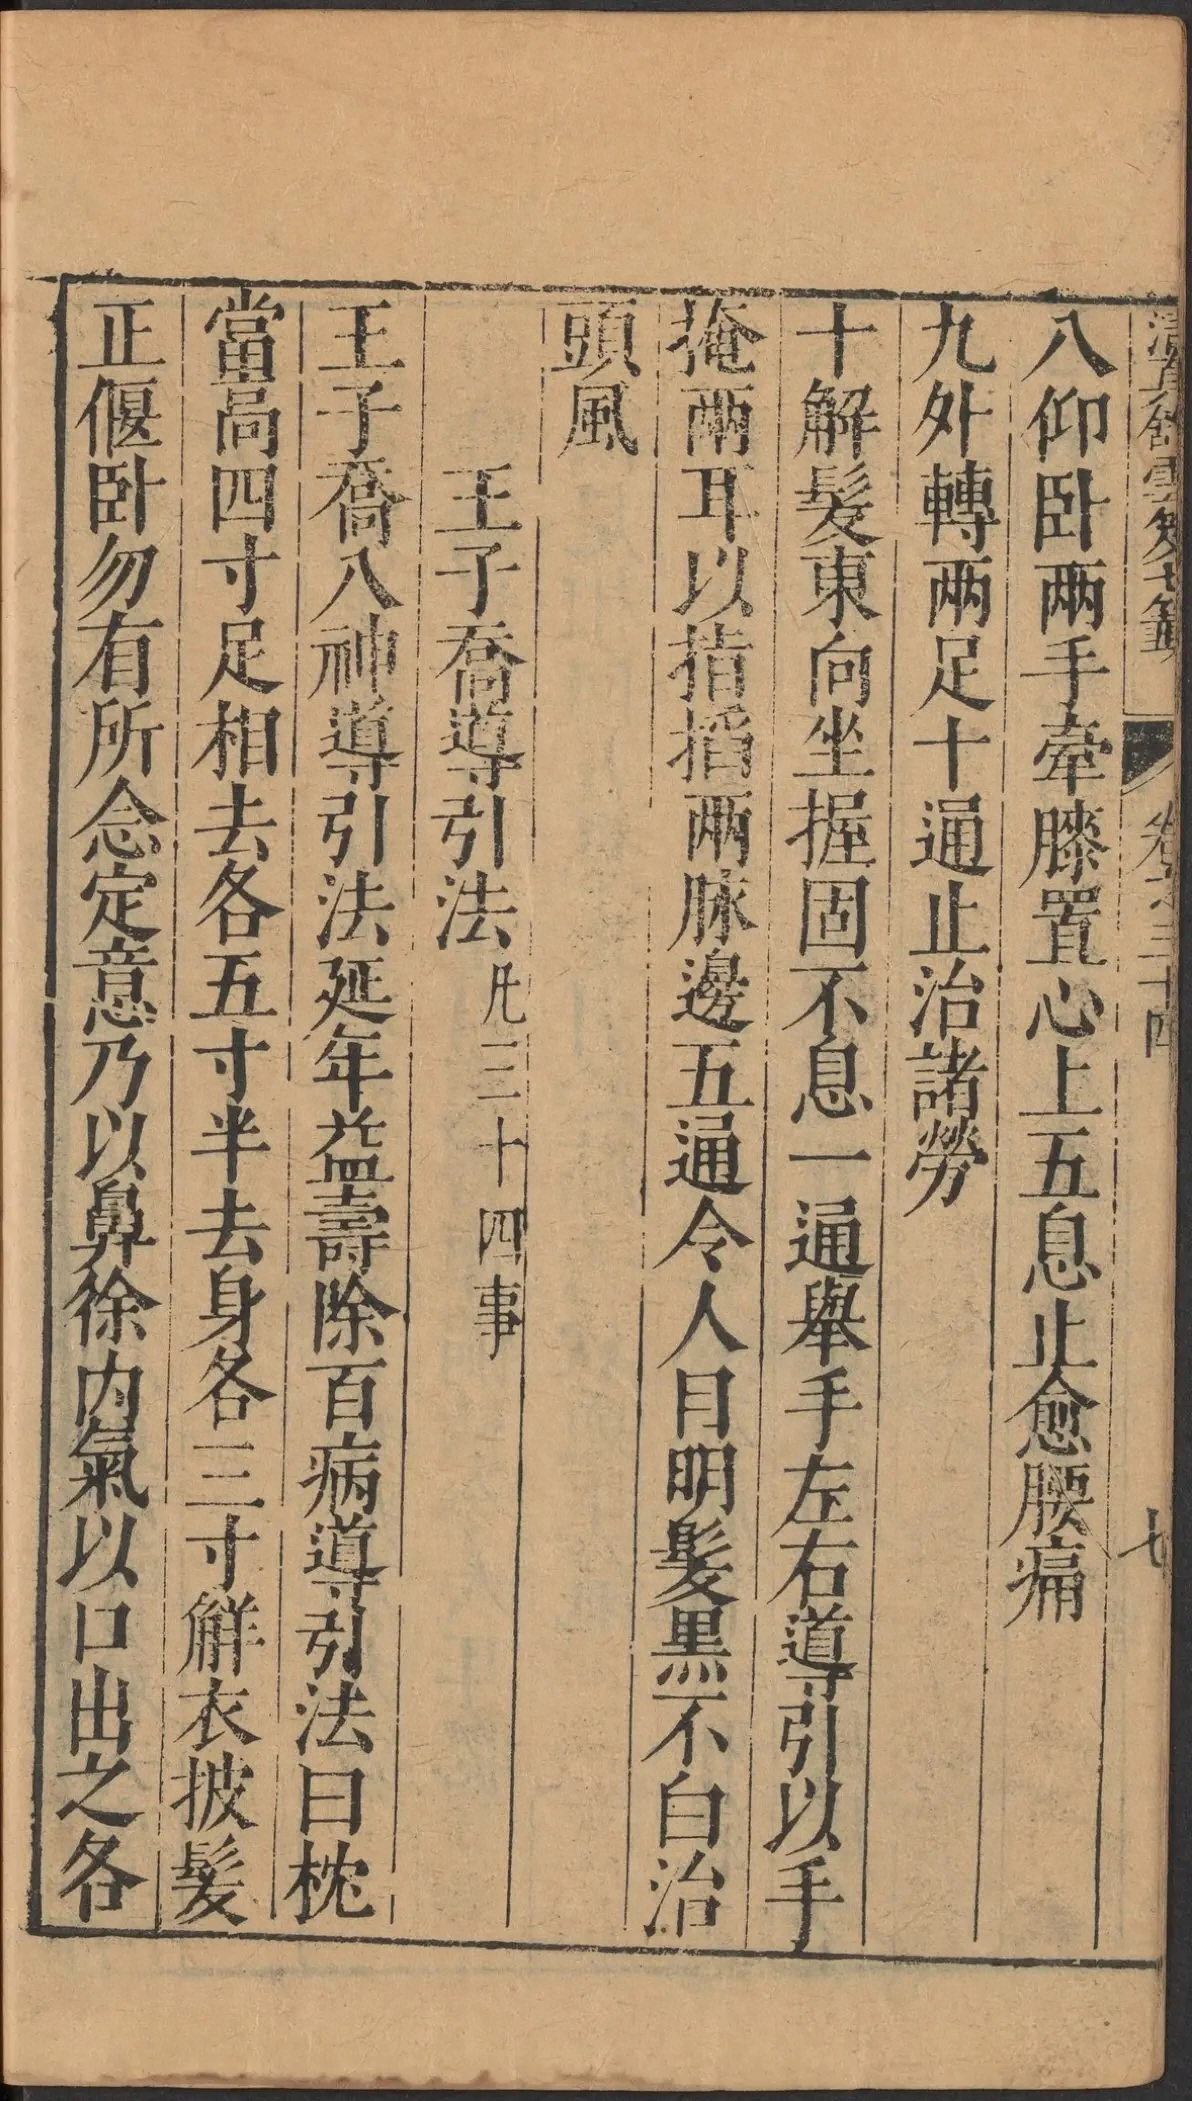 卷之三十四
七
八仰卧兩手牽膝置心上五息止愈腰痛
九外轉兩足十通止治諸勞
十解髮東向坐握固不息一通舉手左右導引以手
掩兩耳以指搯兩脉邊五通令人目明髮黒不白治
頭風
王子喬導引法凡三十四事
王子喬八神導引法延年益壽除百病導引法曰枕
當高四寸足相去各五寸半去身各三寸觧衣披髮
正偃卧勿有所念定意乃以鼻徐内氣以口出之各